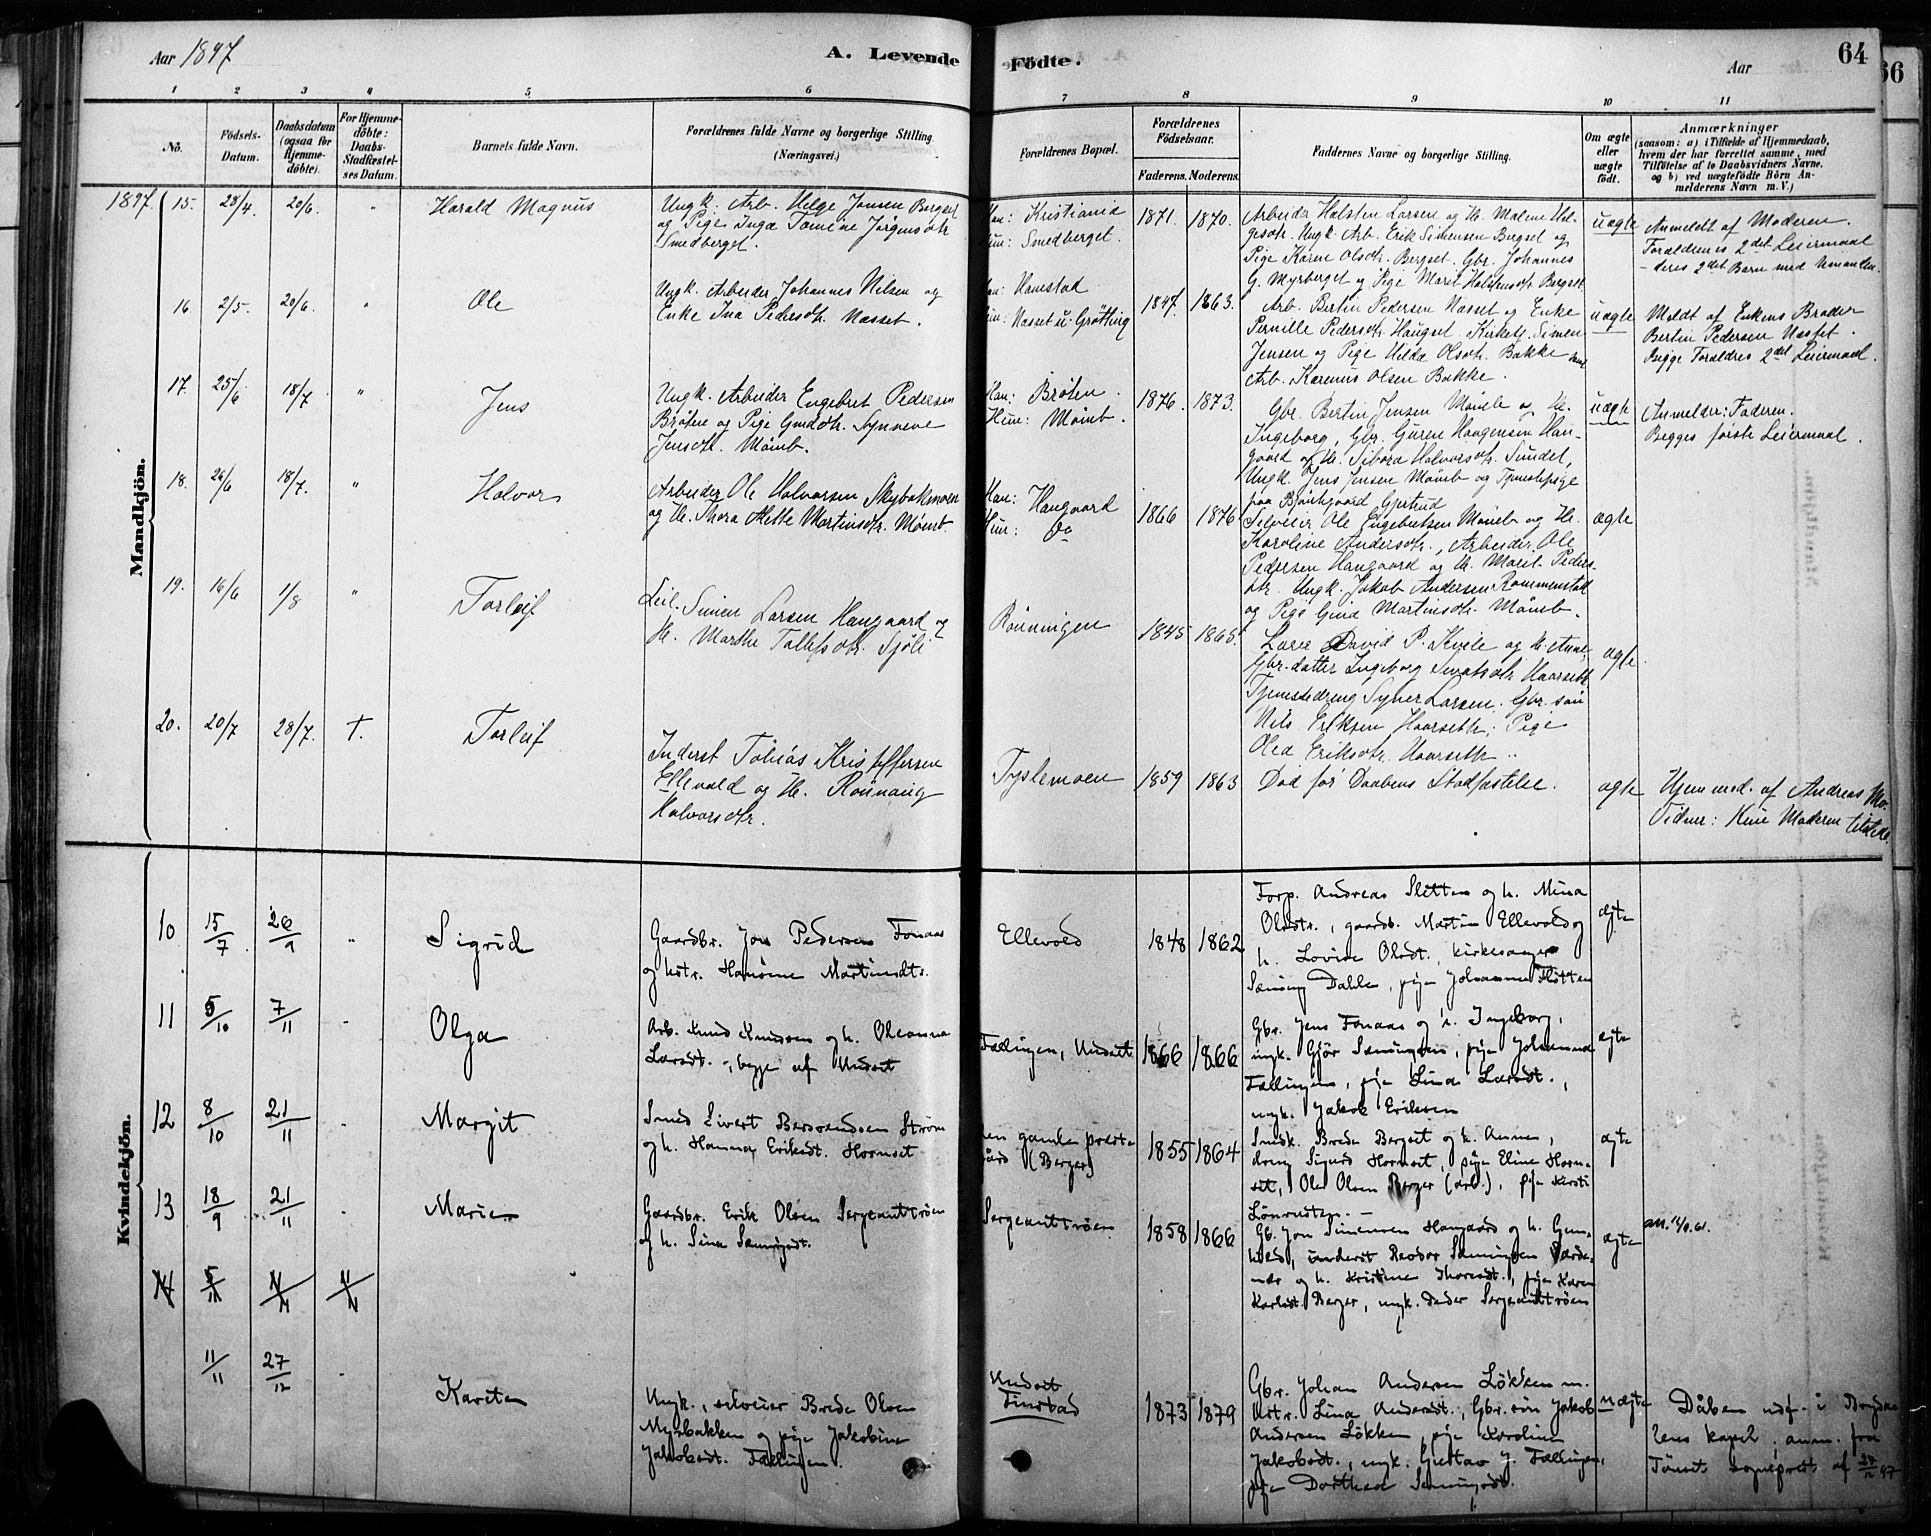 Aar 1897
A. Levende
Födte.
Aar
64
66
1
2
3
4
5
6
7
8
9
10
11
No.
Födsels-
Datum.
Daabsdatum
(ogsaa for
Hjemme-
döbte).
For Hjemme-
döbte:
Daabs-
Stadfæstel-
ses Datum.
Barnets fulde Navn.
Forældrenes fulde Navne og borgerlige Stilling
(Næringsvei.)
Forældrenes Bopæl.
Forældrenes
Födselsaar.
Faderens. Moderens.
Faddernes Navne og borgerlige Stilling.
Om ægte
eller
uægte
født.
Anmærkninger
(saasom: a) i Tilfælde af Hjemmedaab,
hvem der har forrettet samme, med
Tilföielse af to Daabsvidners Navne,
og b) ved uægtefödte Börn An-
melderens Navn m. V.)
Mandkjön.
1897. 15. 28/4. 20/6. "
Harald Magnus
Ungk. Arb. Helge Jensen Bergset
og Pige Inga Tomine Jørgensdtr.
Smedberget.
Han: Kristiania
Hun: Smedberget.
1871. 1870.
Arbeider Halsten Larsen og H. Malene Hel-
gesdtr. Ungk. Arb. Erik Simensen Bergset og
Pige Karen Olsdtr. Bergset. Gbr. Johannes
G. Myrberget og Pige Marit Halstensdtr. Bergset
uægte
Anmeldt af Moderen.
Forældrenes 2det Leiermaal
- deres 2det Barn med hinanden.
16 2/5. 20/6. "
Ole
Ungk. Arbeider Johannes Nilsen og
Enke Ina Pedersdtr. Næsset.
Han: Hanestad
Hun: Næsset u. Grøtting
1847. 1863.
Arb. Bertin Pedersen Næsset og Enke
Pernille Pedersdtr. Haugset. Kirketj. Simen
Jensen og Pige Hilda Olsdtr. Bakke
Arb. Karenus Olsen Bakke.
uægte
Meldt af Enkens Broder
Bertin Pedersen Næsset.
Begge Foraldres 2det Leiermaal.
17. 25/6 18/7. "
Jens
Ungk. Arbeider Engebret Pedersen
Brøten og Pige Synneve
Jensdtr. Mömb.
Han: Brøten.
Hun: Mömb.
1876. 1873.
Gbr. Bertin Jensen Mömb og H.
Ingeborg, Gbr. Guren Haagensen Han-
gaard og H. Sibora Halvorsdtr. Sundet,
Ungk. Jens Jensen Mömb og Tjenestepige
paa Bjørkgaard Gjertrud
uægte
Anmelder: Faderen.
Begges første Leiermaal.
18. 26/6 18/7. "
Halvor
Arbeider Ole Halvorsen Skybakmoen
og H. Thora Mette Martinsdtr. Mömb.
Han: Hangaard
Hun: Do
1866 1876
Selveier Ole Engebretsen Mömb og H.
Karoline Andersdtr., Arbeider Ole
Pedersen Hangaard og H. Marit Peders-
dtr. Ungk. Jakob Andersen Rommenstad
og Pige Gina Martinsdtr. Mömb.
ægte
19. 16/6 1/8 "
Torleif
Leil. Simen Larsen Hangaard og
H. Marthe Tollefsdtr. Sjöli
Rönningen
1845 1865.
Lærer David P. Kvile og H. Anne,
Gbr.datter Ingeborg Haarseth
Tjenestedreng Syver Larsen. Gbr. sön
Nils Eriksen Haarseth. Pige
Olea Eriksdtr. Haarseth.
ægte.
20. 20/7 28/7. †.
Torleif
Inderst Tobias Kristoffersen
Ellevold og H. Rönnaug
Halvorsdtr.
Tyslemoen
1859 1863
Död för Daabens Stadfæstelse.
ægte
Hjemmed. af Andreas Mo.
Vidner: Kun Moderen tilstede.
Kvindekjön.
10 15/7 26/9 "
Sigrid
Gaardbr. Jon Pedersen Fonaas
og hstr. Hansine Martinsdtr.
Ellevold
1848 1862
Forp. Andreas Sletten og h. Mina
Olsdtr., gaardb. Martin Ellevold og
h. Lovise Olsdt., kirkesanger
Sæming Dahle, pige Johanne Fløtten
ægte
11 5/10 7/11 "
Olga
Arb. Knud Knudsen og h. Oleanna
Larsdt., begge af Undset
Fællingen, Undset
1866 1866
Gbr. Jens Fonaas og h. Ingeborg,
ungk. Gjör Sæmingsen, pige Johanna
Fællingen, pige Lina Larsdt.,
ungk. Jakob Eriksen
ægte
12 8/10 21/11 "
Margit
Smed Sivert Berntsen Ström
og h. Hanna Eriksdt. Hornset
den gamle preste-
gård (Berger)
1855 1864
Smedk. Brede Bergset og h. Anne,
dreng Sigurd Hornset, pige Eline Horn-
set, Ole Olsen Berger (arb.), pige Kersti
Lönrusten.
ægte
13 18/9 21/11 "
Marie
Gaardbr. Erik Olsen Sergeanttröen
og h. Sina Sæmingsdt.
Sergeanttröen
1858 1866
Gb. Jon Simensen Hangaard og h. Gun-
hild, inderst Peder Sæmingsen
og h. Kristine Thoresdt., pige Karen
Karlsdt. Berger, ungk. Peder Sergeanttröen
ægte
14
11/11 27/12 "
Karete
Ungk., selveier Brede Olsen
Myrbakken og pige Jakobine
Jakobsdt. Fællingen.
Undset
Finstad
1873 1879
Gbr. Johan Andersen Løkken m.
hstr. Lina Andersdt., Gbr.sön Jakob
Andersen Løkken, pige Karoline
Jakobsdt., ungk. Gustav J. Fællingen,
pige Dorthea Sæmingsdt.
uægte
Dåben udf. i Brydalens kapel, anm. fra
Tönset sognepræst af 27/12 97